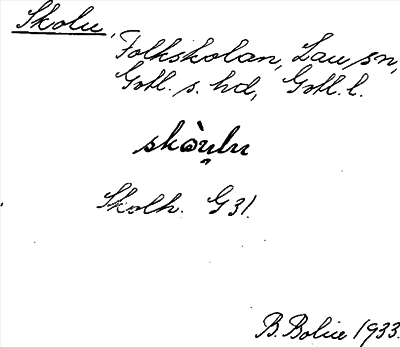 Skolu,
Folkskolan, Lau sn,
Gotl. s. hd, Gotl. l.
skòu̯lu
Skolh. G 31.
B. Bolin 1933.